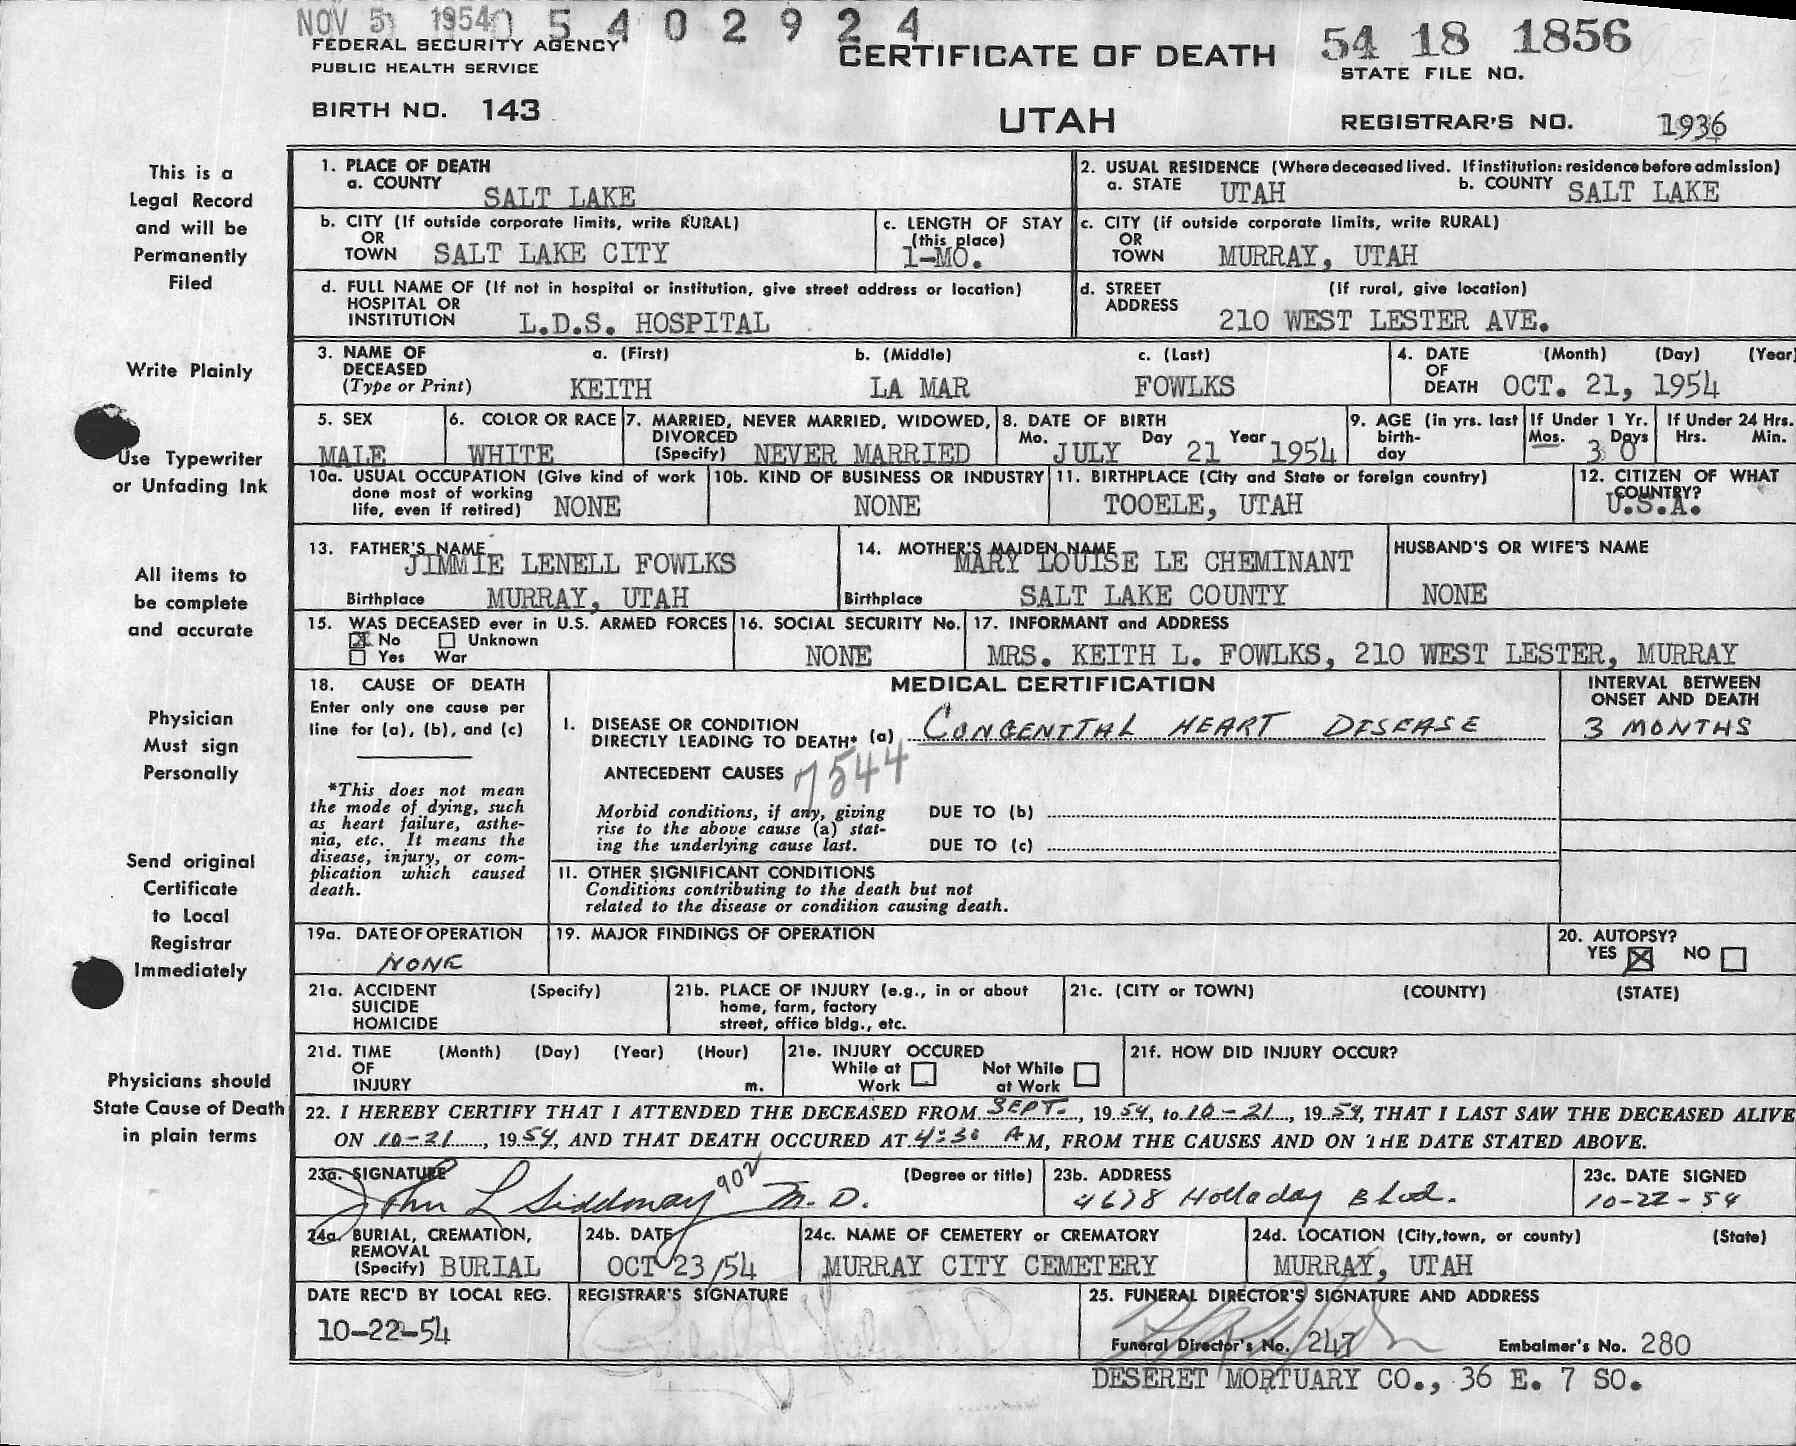 NOV 5 1954 0 5 4 0 2 9 2 4
FEDERAL SECURITY AGENCY
PUBLIC HEALTH SERVICE
CERTIFICATE OF DEATH
54 18 1856
STATE FILE NO.
BIRTH NO. 143
UTAH
REGISTRAR'S NO. 1936
This is a
Legal Record
and will be
Permanently
Filed
Write Plainly
Use Typewriter
or Unfading Ink
All items to
be complete
and accurate
Physician
Must sign
Personally
Send original
Certificate
to Local
Registrar
Immediately
Physicians should
State Cause of Death
in plain terms
1. PLACE OF DEATH
a. COUNTY
SALT LAKE
2. USUAL RESIDENCE (Where deceased lived. If institution: residence before admission)
a. STATE UTAH b. COUNTY SALT LAKE
b. CITY (If outside corporate limits, write RURAL)
OR
TOWN SALT LAKE CITY
c. LENGTH OF STAY
(this place)
1-MO.
c. CITY (if outside corporate limits, write RURAL)
OR
TOWN MURRAY, UTAH
d. FULL NAME OF (If not in hospital or institution, give street address or location)
HOSPITAL OR
INSTITUTION L.D.S. HOSPITAL
d. STREET (If rural, give location)
ADDRESS
210 WEST LESTER AVE.
3. NAME OF a. (First) b. (Middle) c. (Last)
DECEASED
(Type or Print) KEITH LA MAR FOWLKS
4. DATE (Month) (Day) (Year)
OF
DEATH OCT. 21, 1954
5. SEX
MALE
6. COLOR OR RACE
WHITE
7. MARRIED, NEVER MARRIED, WIDOWED,
DIVORCED
(Specify) NEVER MARRIED
8. DATE OF BIRTH
Mo. Day Year
JULY 21 1954
9. AGE (in yrs. last
birth-
day
If Under 1 Yr.
Mos. Days
3 0
If Under 24 Hrs.
Hrs. Min.
10a. USUAL OCCUPATION (Give kind of work
done most of working
life, even if retired) NONE
10b. KIND OF BUSINESS OR INDUSTRY
NONE
11. BIRTHPLACE (City and State or foreign country)
TOOELE, UTAH
12. CITIZEN OF WHAT
COUNTRY?
U.S.A.
13. FATHER'S NAME
JIMMIE LENELL FOWLKS
Birthplace MURRAY, UTAH
14. MOTHER'S MAIDEN NAME
MARY LOUISE LE CHEMINANT
Birthplace SALT LAKE COUNTY
HUSBAND'S OR WIFE'S NAME
NONE
15. WAS DECEASED ever in U.S. ARMED FORCES
X No Unknown
Yes War
16. SOCIAL SECURITY No.
NONE
17. INFORMANT and ADDRESS
MRS. KEITH L. FOWLKS, 210 WEST LESTER, MURRAY
18. CAUSE OF DEATH
Enter only one cause per
line for (a), (b), and (c)
*This does not mean
the mode of dying, such
as heart failure, asthe-
nia, etc. It means the
disease, injury, or com-
plication which caused
death.
MEDICAL CERTIFICATION
INTERVAL BETWEEN
ONSET AND DEATH
I. DISEASE OR CONDITION
DIRECTLY LEADING TO DEATH* (a) CONGENITAL HEART DISEASE
3 MONTHS
ANTECEDENT CAUSES 7544
Morbid conditions, if any, giving
rise to the above cause (a) stat-
ing the underlying cause last.
DUE TO (b)
DUE TO (c)
II. OTHER SIGNIFICANT CONDITIONS
Conditions contributing to the death but not
related to the disease or condition causing death.
19a. DATE OF OPERATION
NONE
19. MAJOR FINDINGS OF OPERATION
20. AUTOPSY?
YES X NO
21a. ACCIDENT (Specify)
SUICIDE
HOMICIDE
21b. PLACE OF INJURY (e.g., in or about
home, farm, factory
street, office bldg., etc.
21c. (CITY or TOWN) (COUNTY) (STATE)
21d. TIME (Month) (Day) (Year) (Hour)
OF
INJURY m.
21e. INJURY OCCURED
While at Not While
Work at Work
21f. HOW DID INJURY OCCUR?
22. I HEREBY CERTIFY THAT I ATTENDED THE DECEASED FROM SEPT., 19 54, to 10-21, 19 54, THAT I LAST SAW THE DECEASED ALIVE
ON 10-21, 19 54, AND THAT DEATH OCCURED AT 4:30 A M, FROM THE CAUSES AND ON THE DATE STATED ABOVE.
23a. SIGNATURE (Degree or title)
John L Siddoway 902 M.D.
23b. ADDRESS
4678 Holladay Blvd.
23c. DATE SIGNED
10-22-54
24a. BURIAL, CREMATION,
REMOVAL
(Specify) BURIAL
24b. DATE
OCT 23/54
24c. NAME OF CEMETERY or CREMATORY
MURRAY CITY CEMETERY
24d. LOCATION (City, town, or county) (State)
MURRAY, UTAH
DATE REC'D BY LOCAL REG.
10-22-54
REGISTRAR'S SIGNATURE
25. FUNERAL DIRECTOR'S SIGNATURE AND ADDRESS
Funeral Director's No. 247 Embalmer's No. 280
DESERET MORTUARY CO., 36 E. 7 SO.